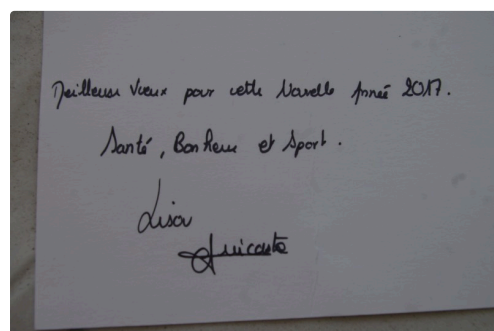 Meilleurs Vœux pour cette Nouvelle Année 2017.
Santé, Bonheur et Sport.
Lisa